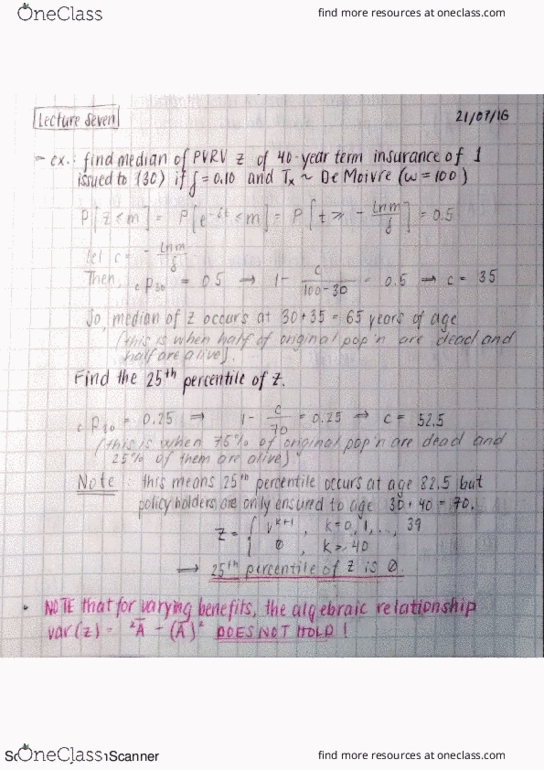 OneClass
find more resources at oneclass.com
Lecture Seven
21/07/16
- ex.: find median of PVRV Z of 40-year term insurance of 1
issued to (30) if δ = 0.10 and Tx ~ De Moivre (ω = 100)
P[Z ≤ m] = P[e^-δt ≤ m] = P[t ≥ - ln m / δ] = 0.5
let c = - ln m / δ
Then, cP30 = 0.5 → 1 - c / 100-30 = 0.5 → c = 35
So, median of Z occurs at 30+35 = 65 years of age
(this is when half of original pop'n are dead and
half are alive).
Find the 25th percentile of Z.
cP30 = 0.25 ⇒ 1 - c / 70 = 0.25 ⇒ c = 52.5
(this is when 75% of original pop'n are dead and
25% of them are alive)"
Note: this means 25th percentile occurs at age 82.5 but
policy holders are only ensured to age 30+40 = 70.
Z = { v^k+1 , k=0, 1, ..., 39
0 , k ≥ 40
→ 25th percentile of Z is 0.
• NOTE that for varying benefits, the algebraic relationship
var(Z) = ²Ā - (Ā)² DOES NOT HOLD!
OneClass
Scanner
find more resources at oneclass.com